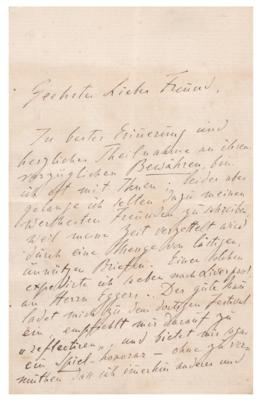 Geehrter lieber Freund,
In bester Erinnerung und
herzlicher Theilnahme an ihrem
vorzüglichen Bewähren, bin
ich oft mit Ihnen. Leider aber
gelange ich selten dazu meinen
werthesten Freunden zu schreiben
weil meine Zeit verzettelt wird
durch eine Menge von lästigen,
unnützen Briefen. Einen solchen
expedirte ich soeben nach Liverpool
an Herrn Eggers. Der gute Mann
ladet mich zu dem dortigen Festival
ein, empfiehlt mir darauf zu
„reflectiren“, und bietet mir sogar
ein Spiel-honorar – ohne zu ver-
muthen dass ich immerhin anderes und